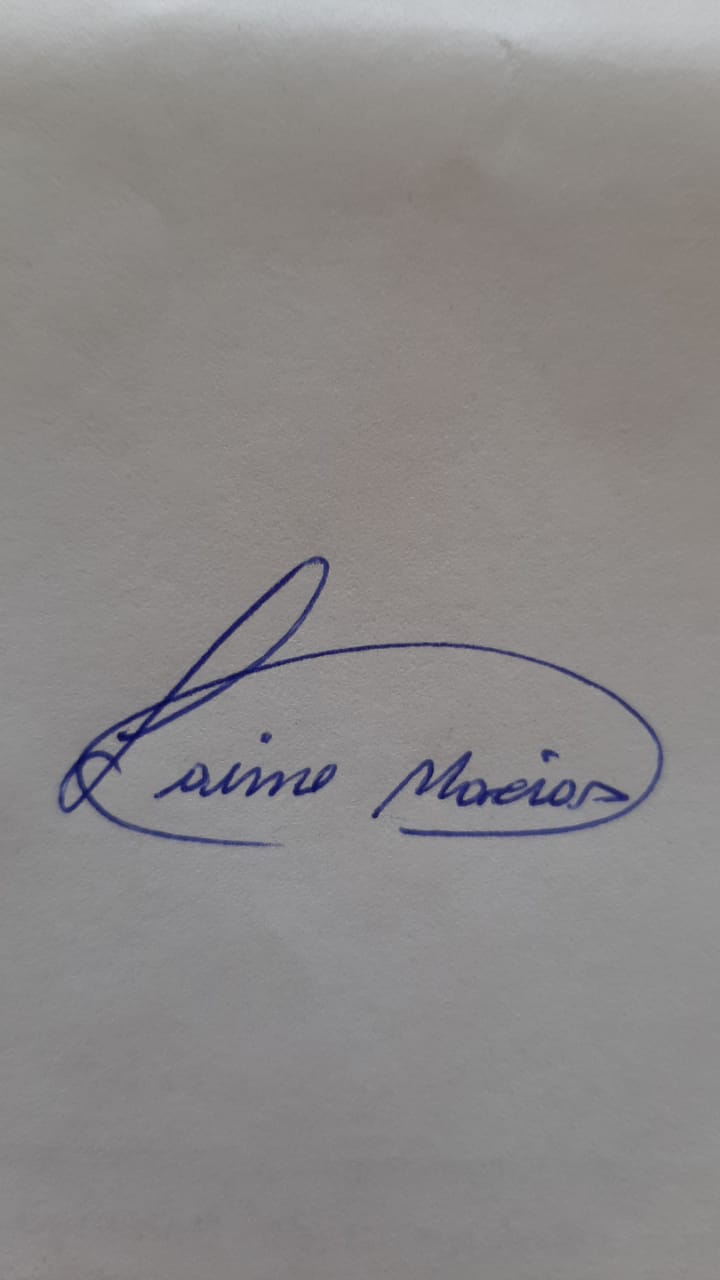 Jaime Macias